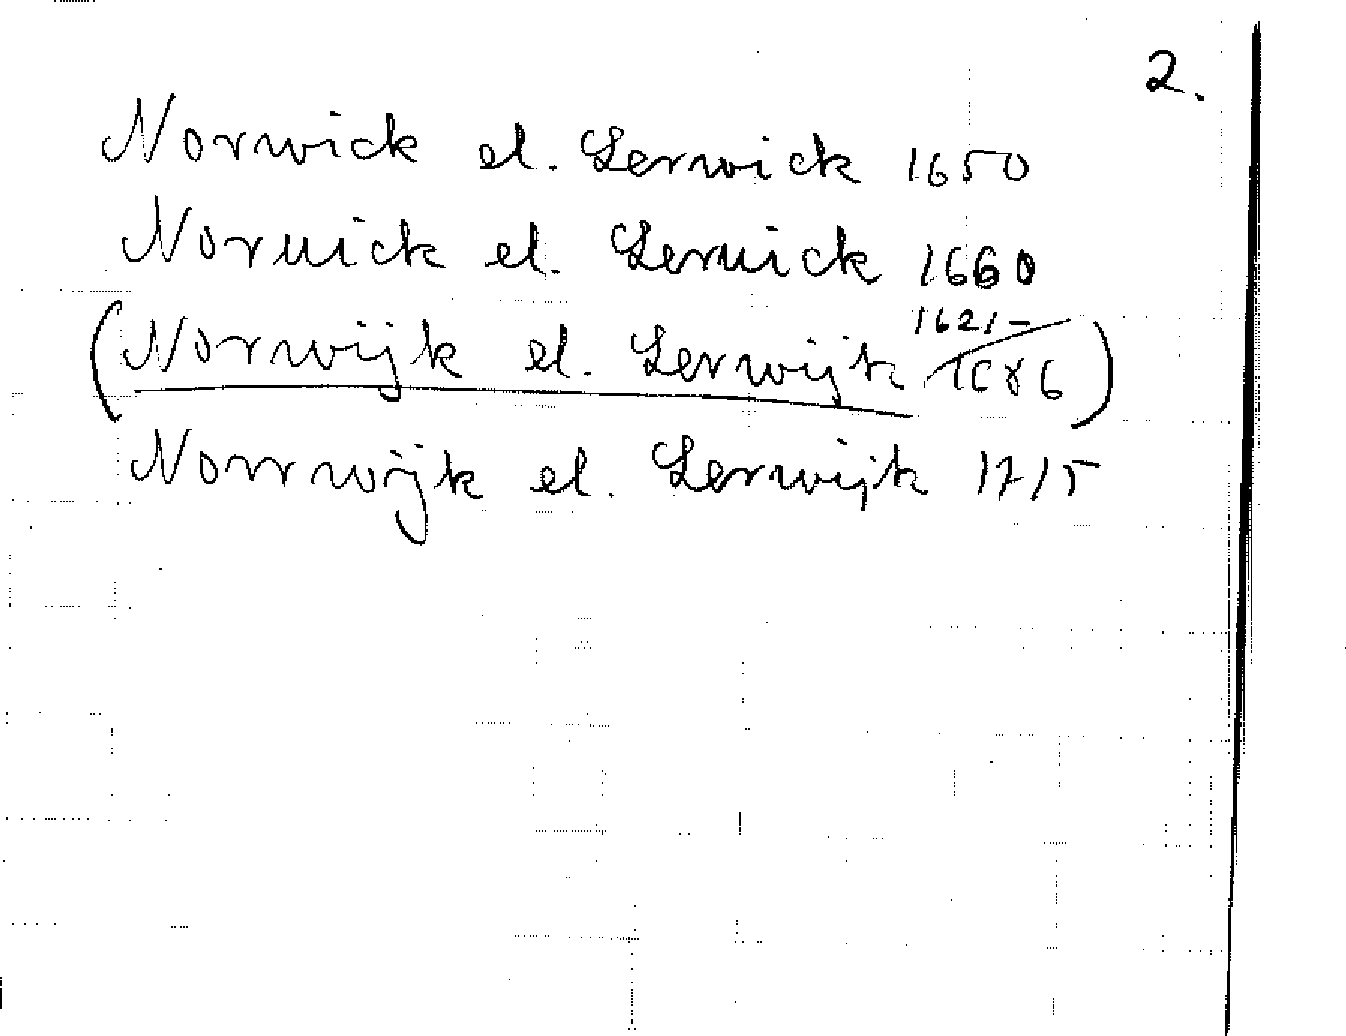 2.
Norwick el. Lerwick 1650
Noruick el. Leruick 1660
1621-
(Norwijk el. Lerwijk 1686)
Norrwijk el. Lerwijk 1715